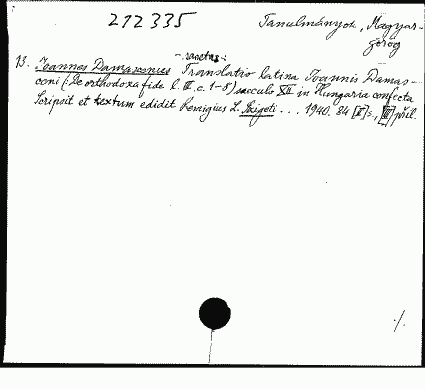 212335
Tanulmányok, Magyar-
görög
13. Joannes Damascenus - sanctus: Translatio latina Ioannis Damas-
ceni (: De orthodoxa fide l. III. c. 1-8) saeculo XII in Hungaria confecta
Scripsit et textum edidit Remigius L. Szigeti ... 1940. 84 [2] s., [III] mell.
./.